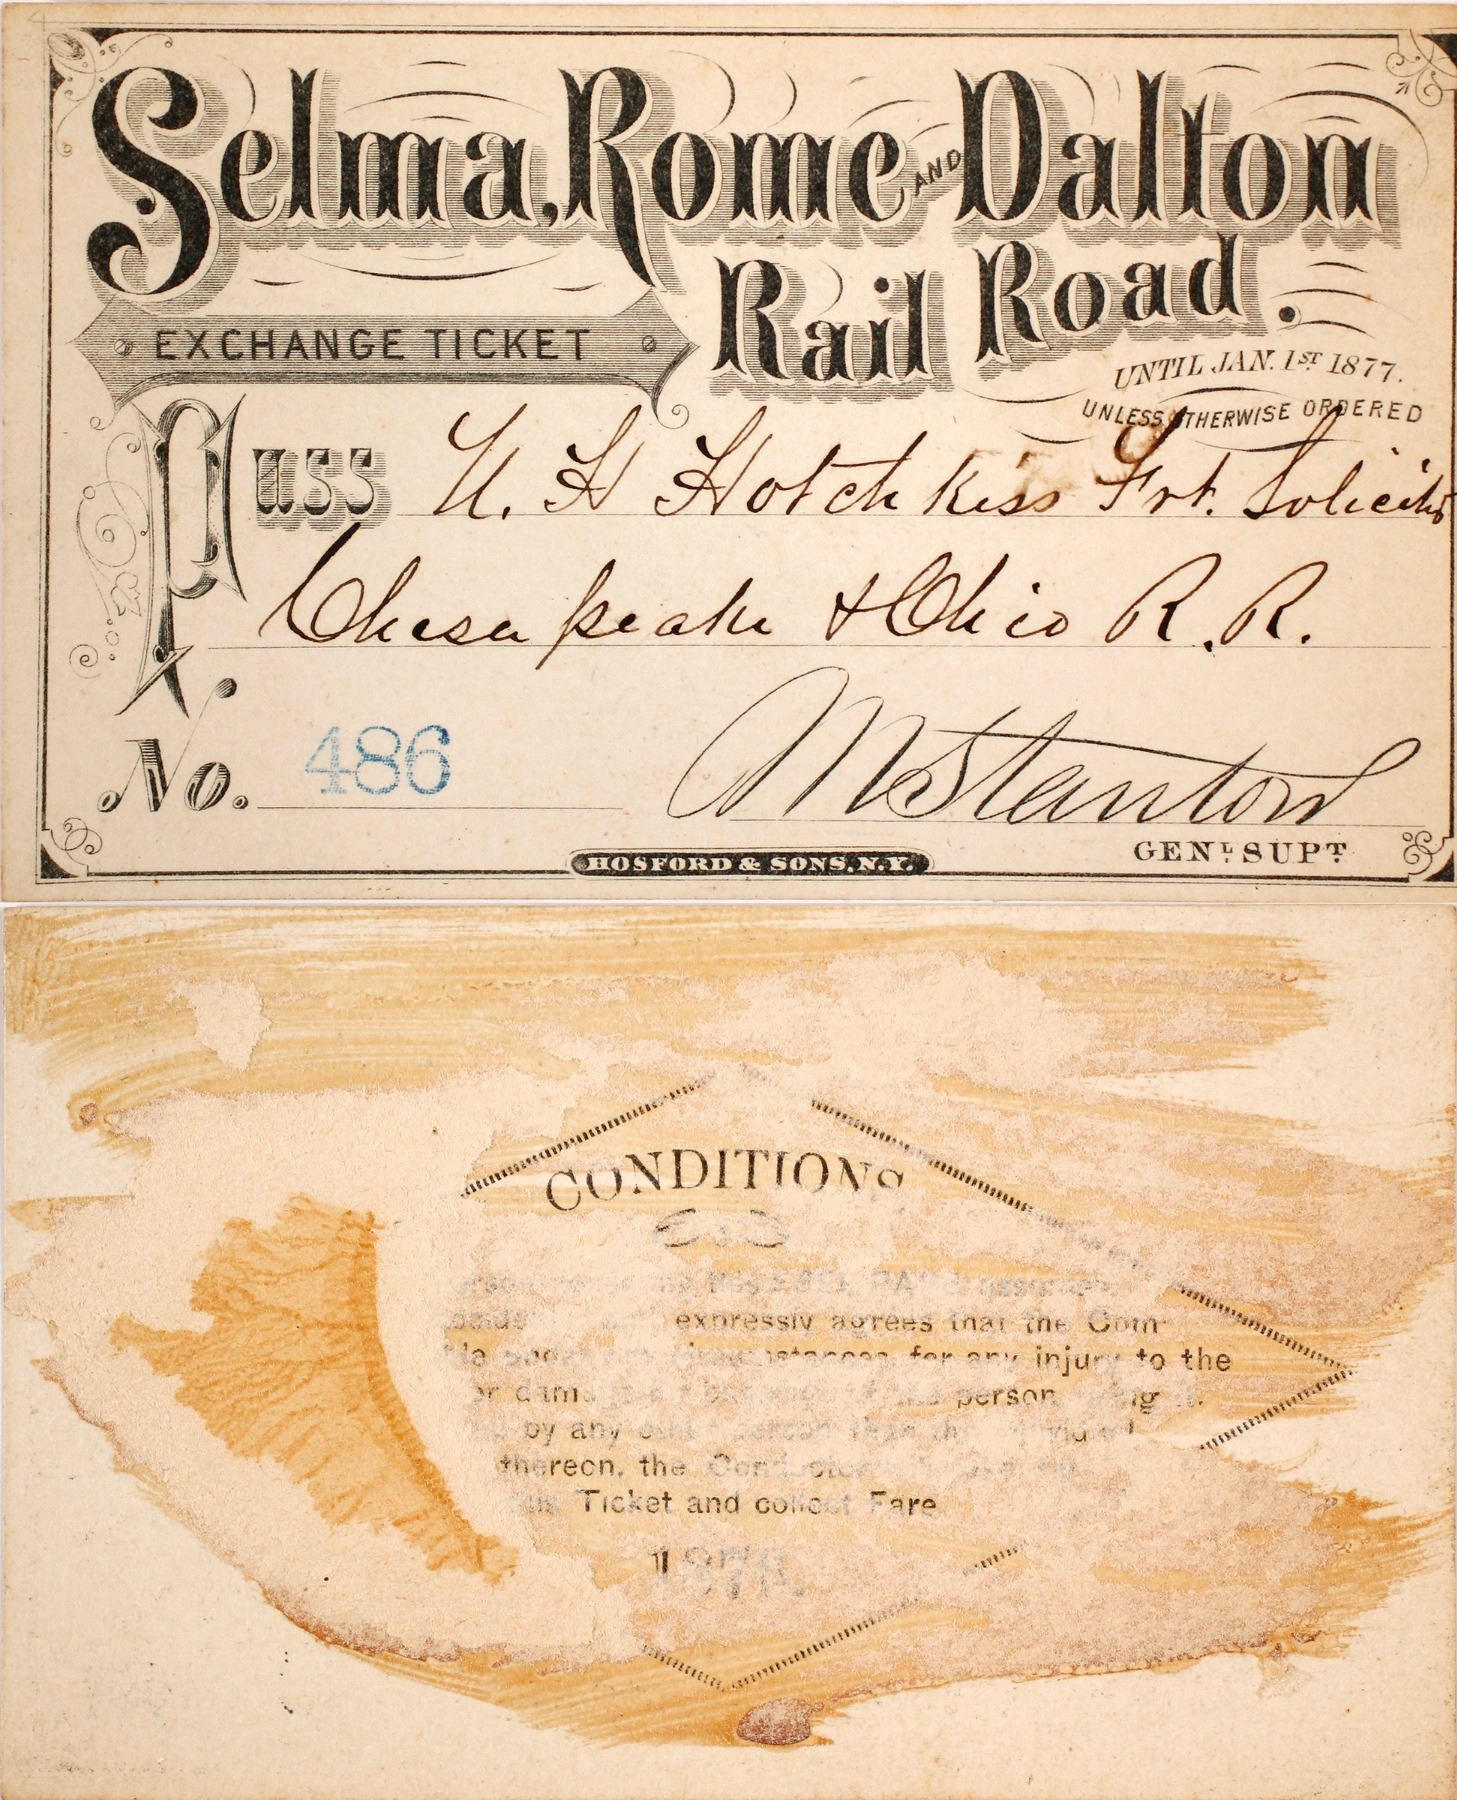 Selma, Rome AND Dalton
Rail Road.
EXCHANGE TICKET
UNTIL JAN. 1ST 1877.
UNLESS OTHERWISE ORDERED
Pass U. H Hotchkiss Frt. Solicitor
Chesapeake & Ohio R. R.
No. 486
M Stanton
GENL SUPT
HOSFORD & SONS, N.Y.
CONDITIONS
expressly agrees that the Com
circumstances, for any injury to the
or person
by any person than
thereon, the Conductor
this Ticket and collect Fare.
1876.